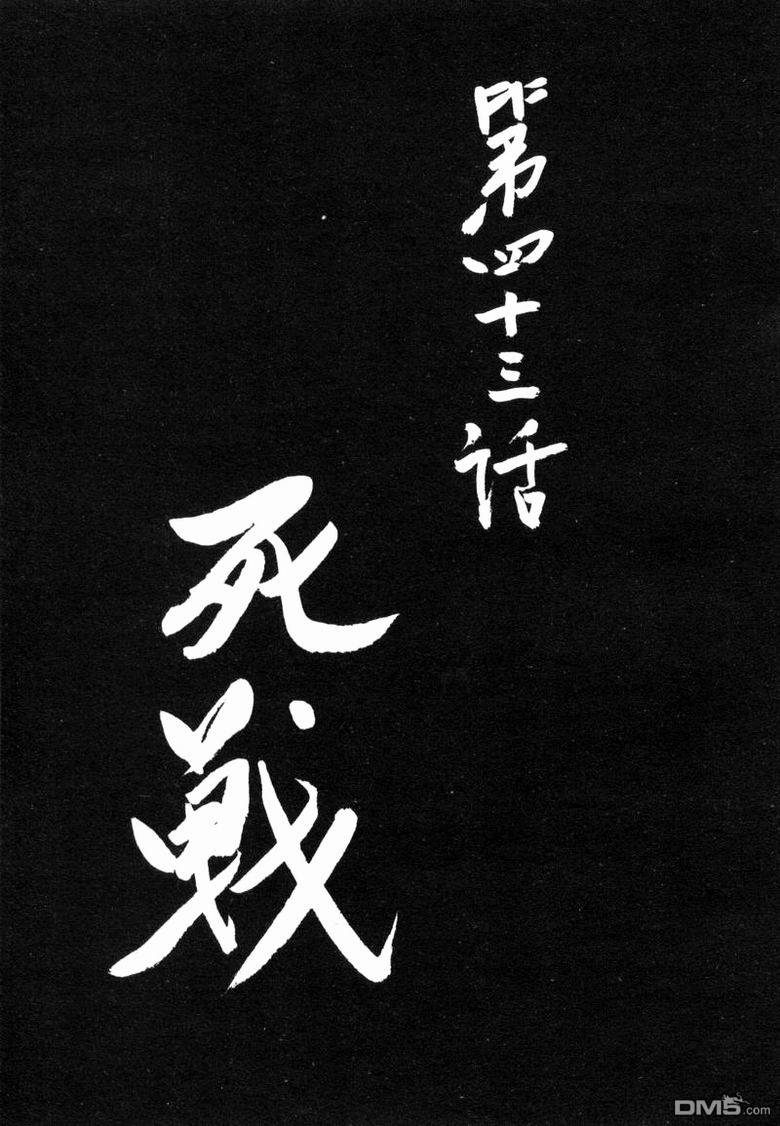 第四十三话
死戦
DM5.com